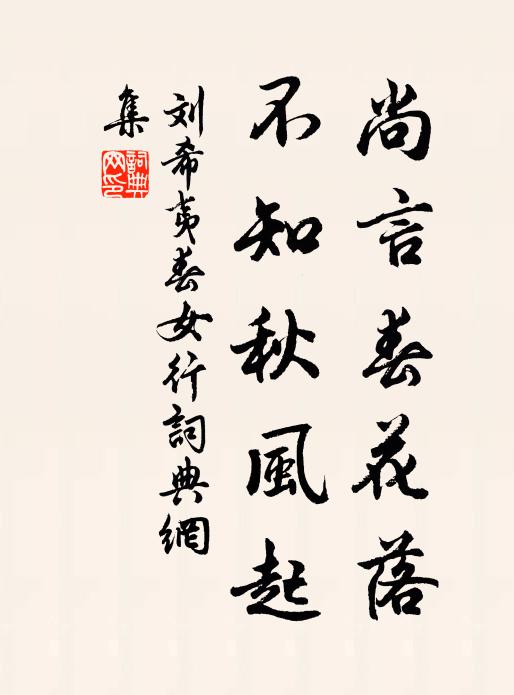 尚言春花落
不知秋風起
刘希夷春女行詞典網
集
詞典
网印